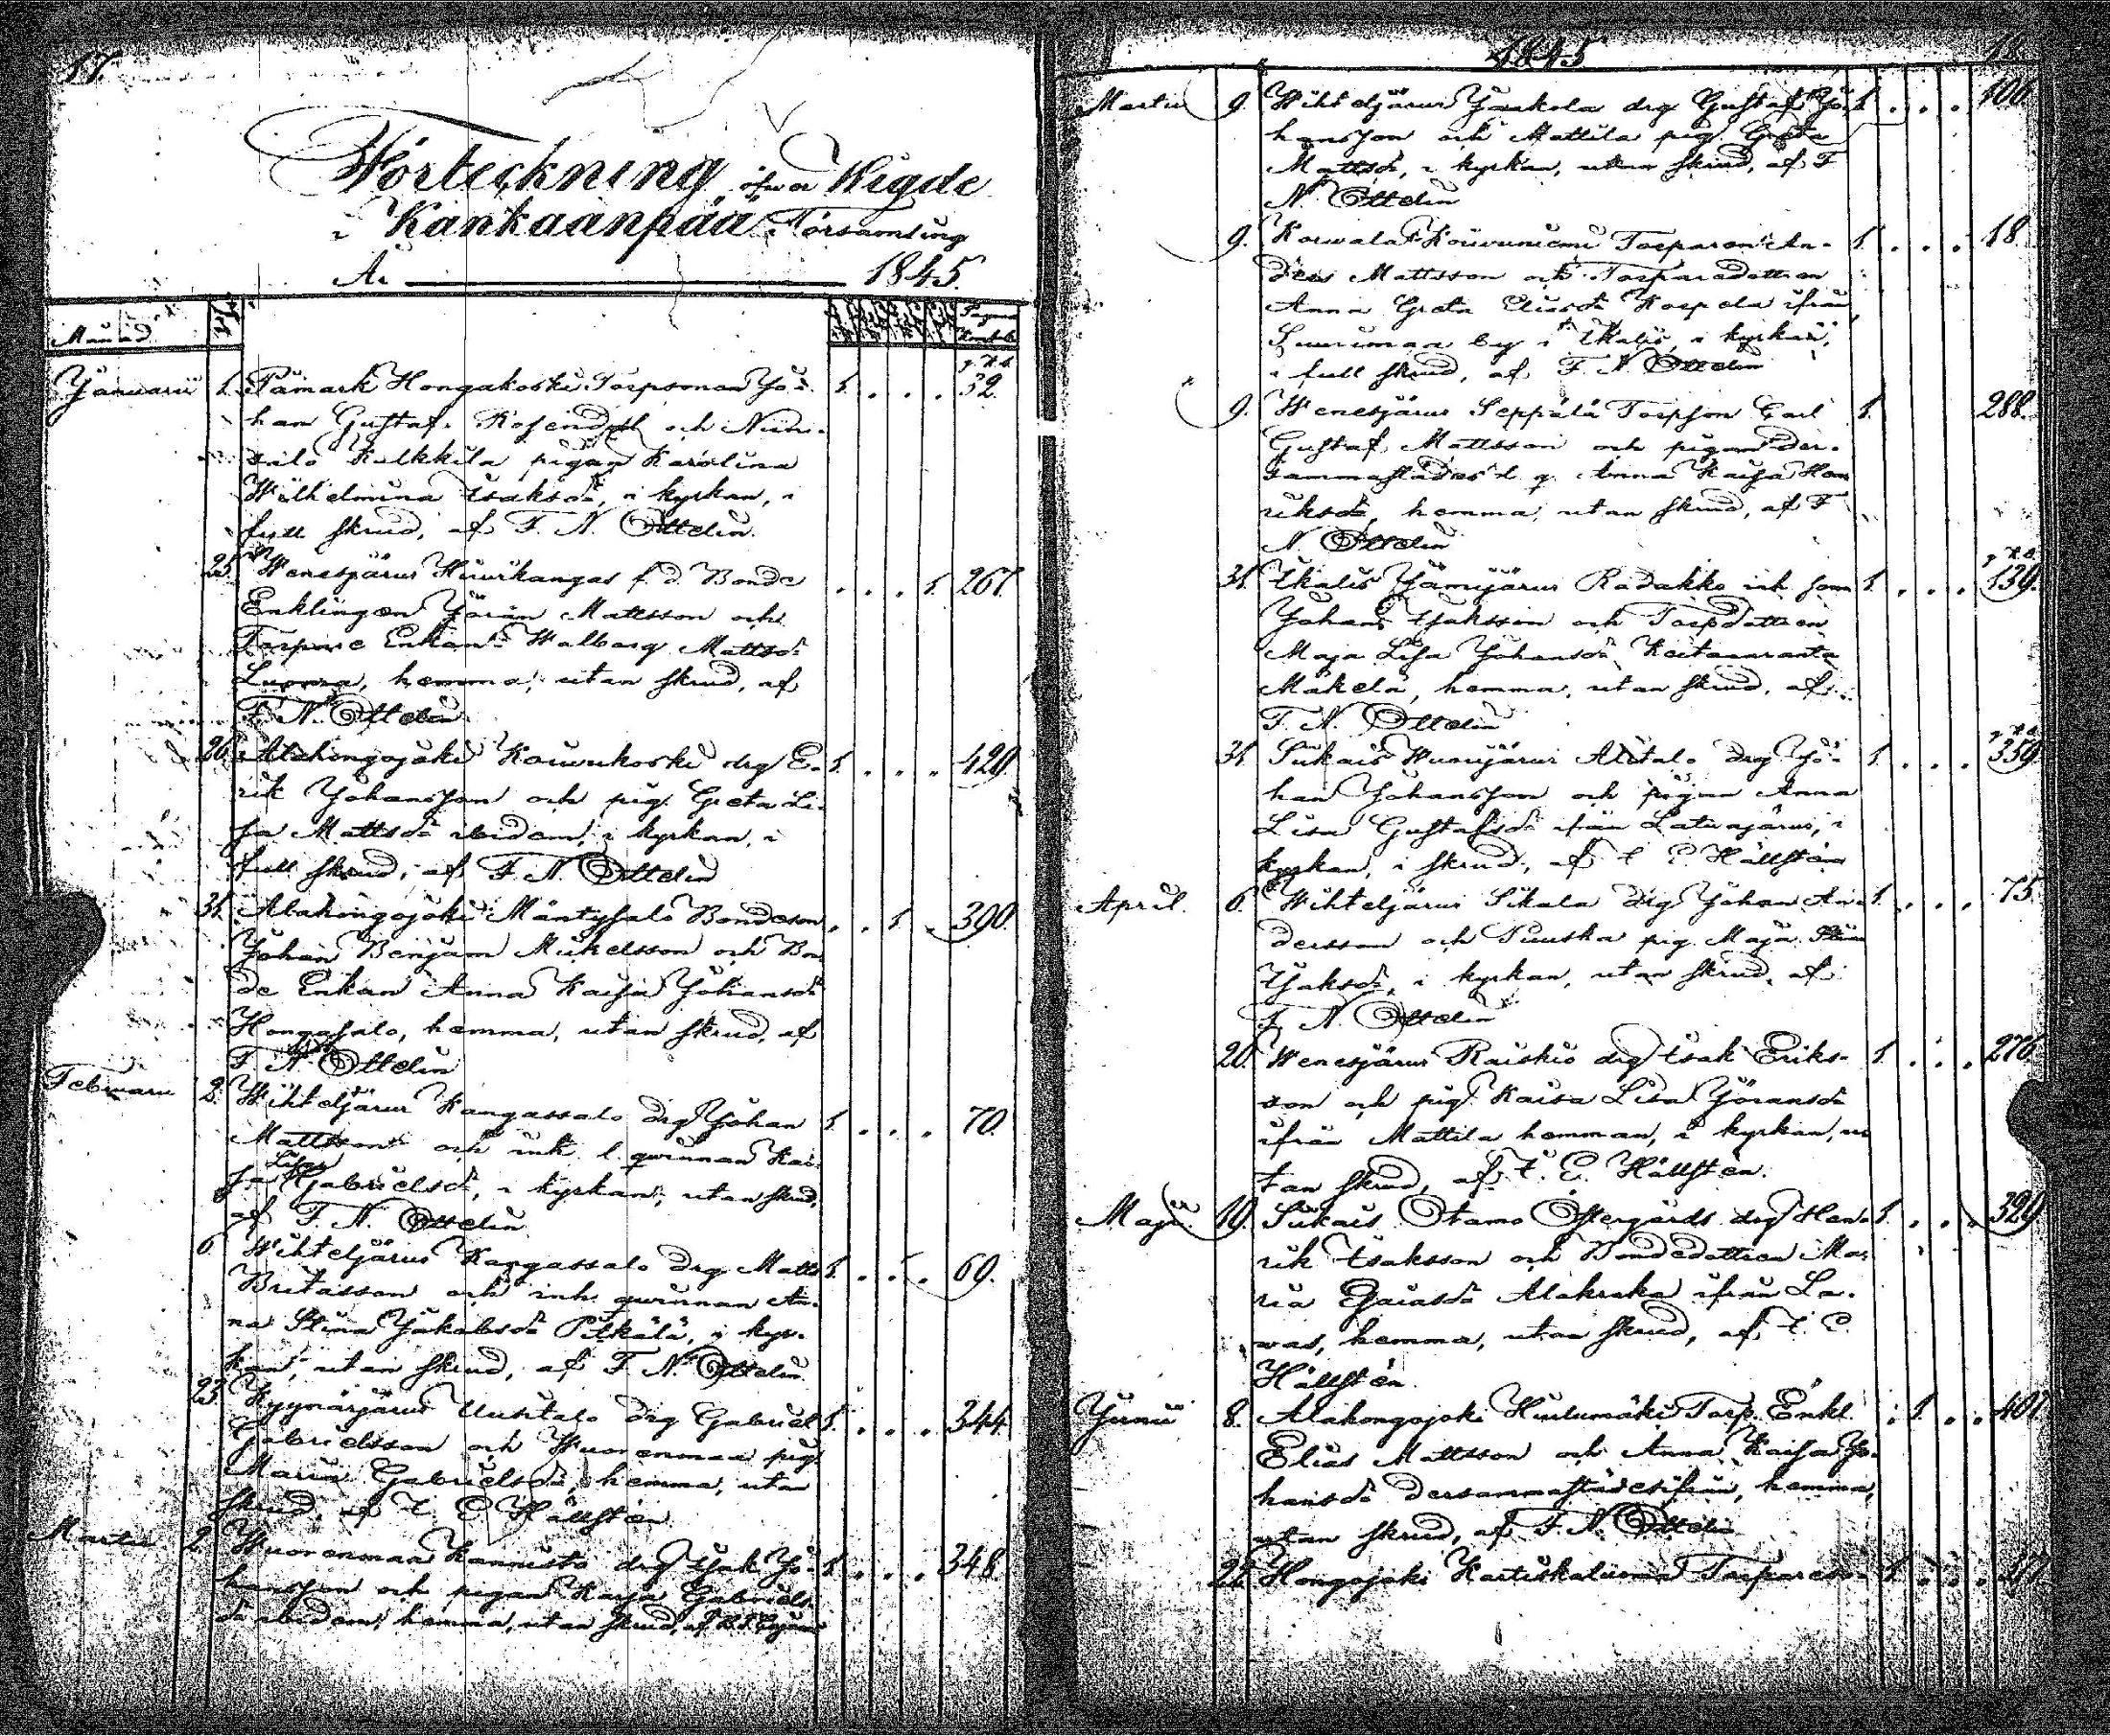 17.
Förteckning öfver Wigde
i Kankaanpää Församling
År 1845.
Månad.
Pagina
Januarii 1. Påmark Hongakoski Torpsonen Jo- 1. . . . . 32.
han Gustaf Rosendahl och Niini-
salo Kulkkila pigan Karolina
Wilhelmina Isaksdr, i kyrkan, i
full skrud, af F. N. Ottelin.
25. Wenesjärvi Hiirikangas f. d. Bonde . . . . 1. 267
Enklingen Jöran Mattsson och
Torpare Enkan Walborg Mattsdr
Luoma, hemma, utan skrud, af
F. N. Ottelin
26. Alahongojoki Kouvukoski drg E- 1. . . . . 429.
rik Johansson och pig. Greta Li-
sa Mattsdr ibidem, i kyrkan, i
full skrud, af F. N. Ottelin
31. Alahongojoki Mäntysalo Bondeson . . . 1. . 300.
Johan Benjam Mickelsson och Bon
de Enkan Anna Kaisa Johansdr
Hongasalo, hemma, utan skrud, af
F. N. Ottelin
Februari 2. Wihteljärvi Kangassalo drg Johan 1. . . . . 70.
Mattsson och inh. l. qvinnan Kai
Lisa
sa Gabrielsdr, i kyrkan, utan skrud,
af F. N. Ottelin
6. Wihteljärvi Kangassalo drg Matts 1. . . . . 69.
Britasson och inh. qvinnan An-
na Stina Jakobsdr Pitkälä, i kyr-
kan, utan skrud, af F. N. Ottelin.
23. Kyynärjärvi Uusitalo drg Gabriel 1. . . . . 344.
Gabrielsson och Wuorenmaa pig.
Maria Gabrielsdr, hemma, utan
skrud, af F. E. Hällsten
Martii 2. Wuorenmaa Kannisto drg Isak Jo- 1. . . . . 348.
hansson och pigan Kaisa Gabriels
dr ibidem, hemma, utan skrud, af
1845
18.
Martii 9. Wihteljärvi Jaakola drg Gustaf Jo- 1. . . . . 100.
hansson och Mattila pig. Greta
Mattsdr, i kyrkan, utan skrud, af F
N. Ottelin
9. Korvala Kouvuniemi Torparen An- 1. . . . . 18.
ders Mattsson och Torparedottren
Anna Greta Eliasdr Korpela ifrån
Suurimaa by i Ikalis, i kyrkan,
i full skrud, af F. N. Ottelin
9. Wenesjärvi Seppälä Torpson Carl 1. 288.
Gustaf Mattsson och pigan der-
sammastädes Anna Kaisa Hen
riksdr, hemma, utan skrud, af F
N. Ottelin
31. Ikalis Jämijärvi Radakko inh son 1. . . . . 139.
Johan Isaksson och Torpdottren
Maja Lisa Johansdr Keitaanranta
Mäkelä, hemma, utan skrud, af
F. N. Ottelin
31. Siikais Wuorijärvi Alitalo drg Jo- 1. . . . . 359.
han Johansson och pigan Anna
Lisa Gustafsdr ifrån Latvajärvi, i
kyrkan, i skrud, af F. E. Hällsten
April. 6. Wihteljärvi Sikala drg Johan An- 1. . . . . 75.
dersson och Puuska pig. Maja Stina
Isaksdr, i kyrkan, utan skrud, af
F. N. Ottelin
20. Wenesjärvi Raiskio drg Isak Eriks- 1. . . . . 276.
son och pig. Kaisa Lisa Jöransdr
ifrån Mattila hemman, i kyrkan, u
tan skrud, af F. E. Hällsten.
Maji. 19. Siikais Otamo Östergårds drg Hen- 1. . . . . 329
rik Isaksson och Bondedottren Ma-
ria Esaiasdr Alakraka ifrån La-
vas, hemma, utan skrud, af F. E.
Hällsten.
Junii 8. Alahongojoki Huilumäki Torp. Enkl. . 1. . . . 407
Elias Mattsson och Anna Kaisa Jo-
hansdr dersammastädesifrån, hemma,
utan skrud, af F. N. Ottelin
22. Hongojoki Kartiskaluoma Torpareso- 1. . . .